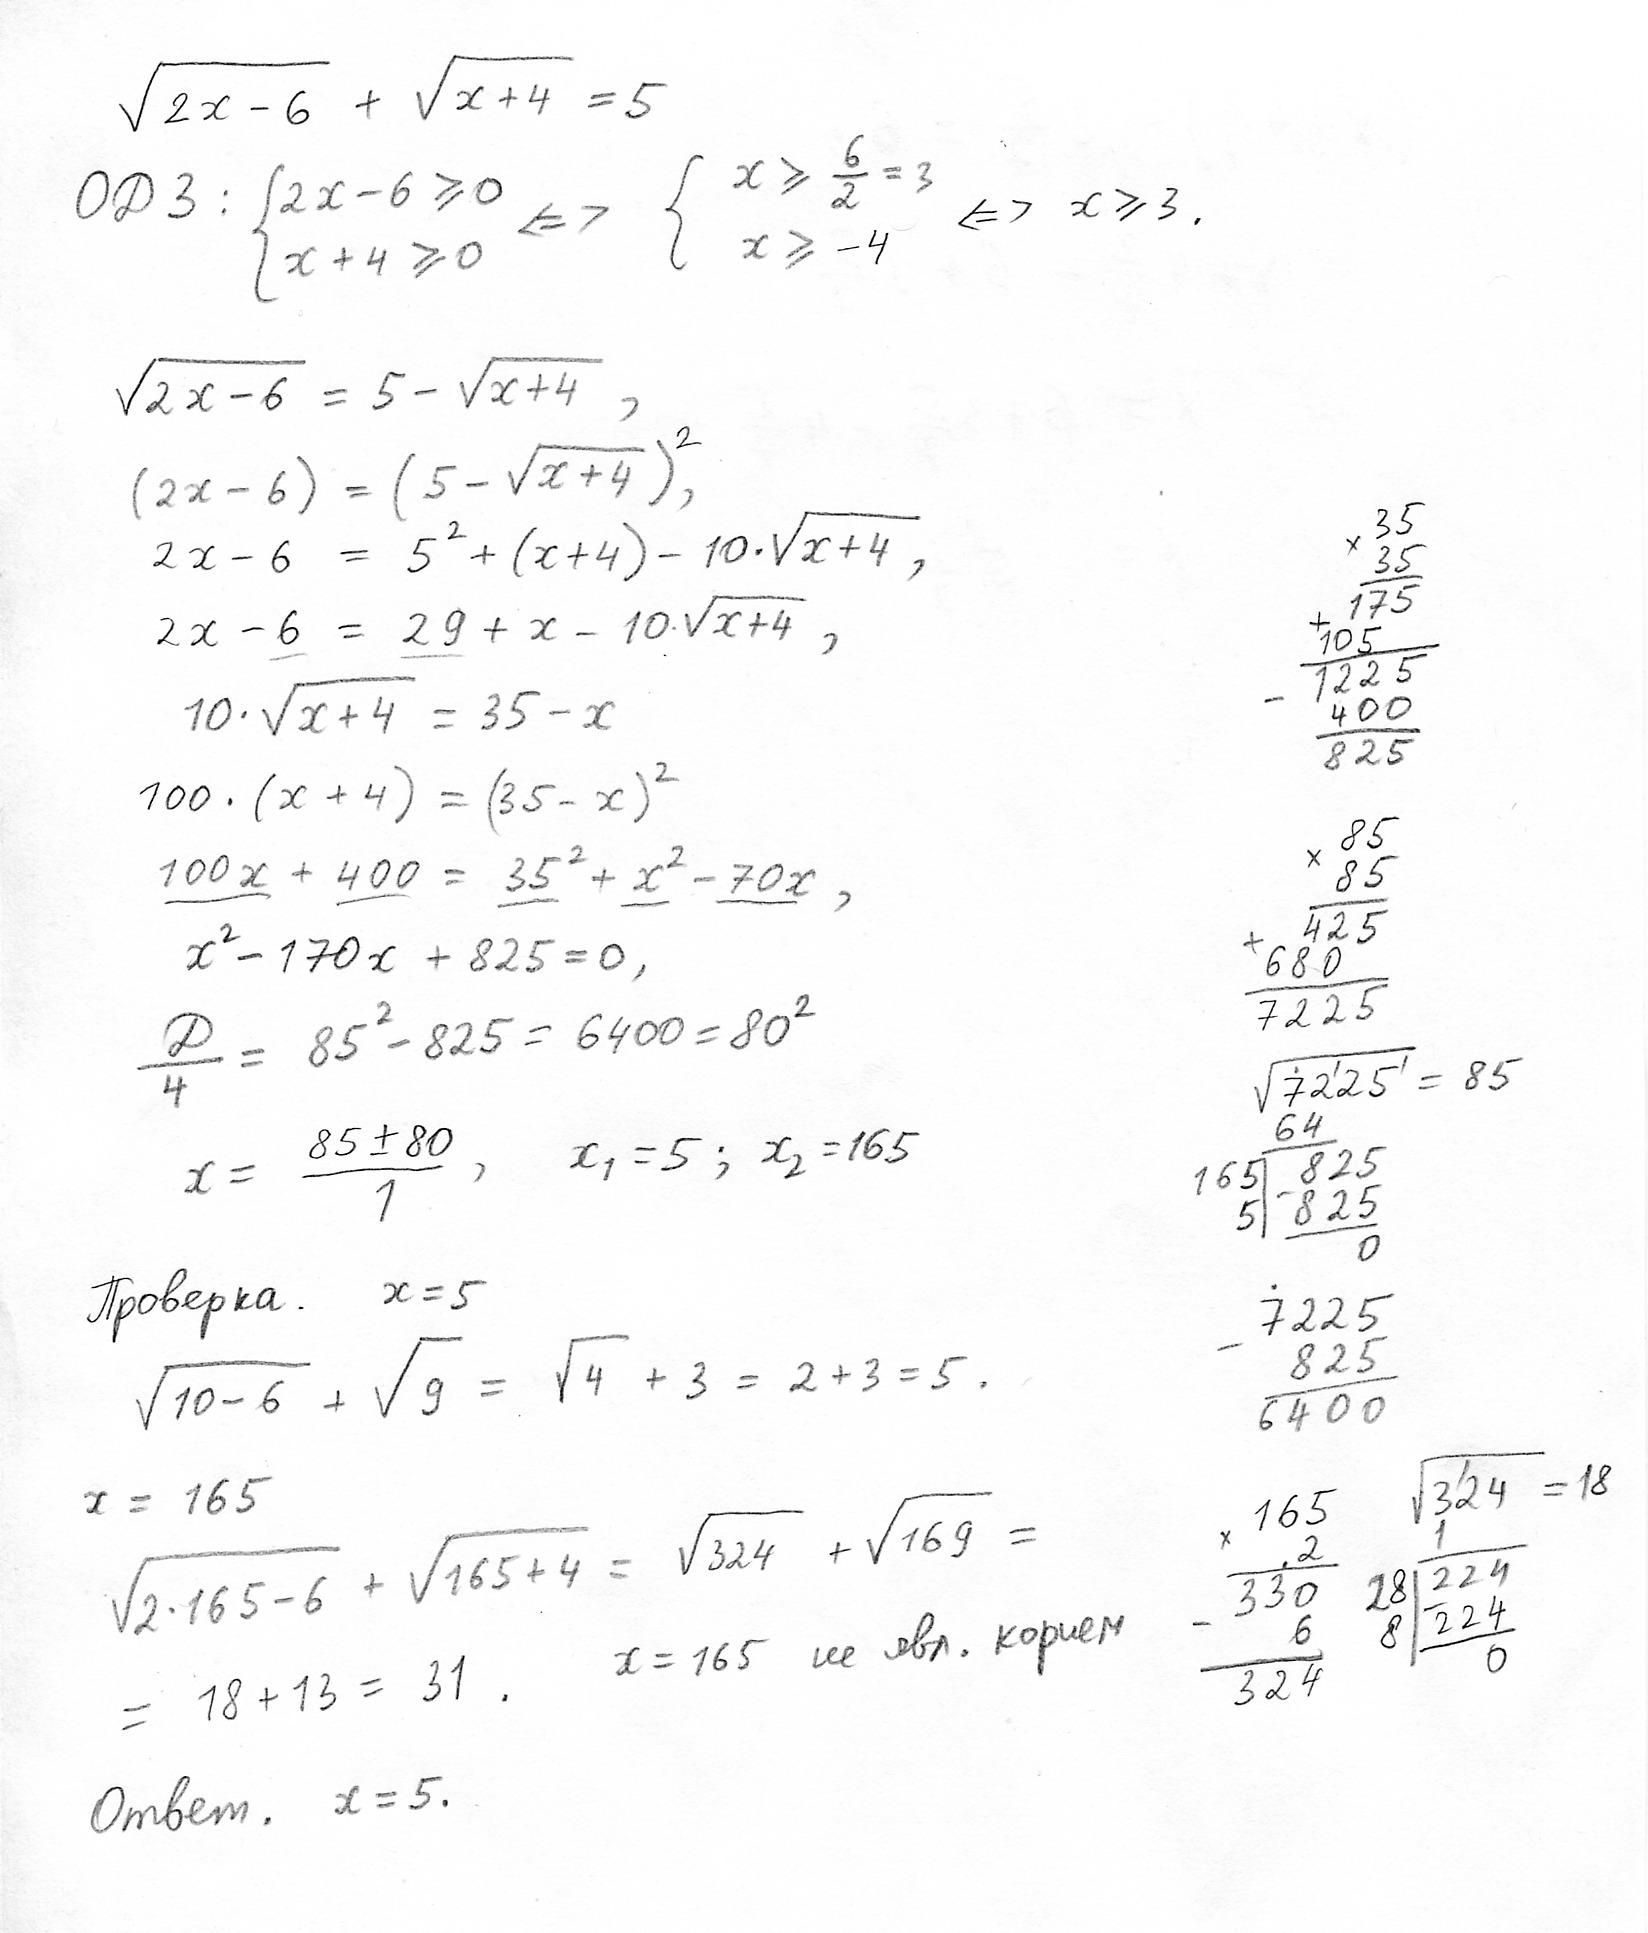 √(2x-6) + √(x+4) = 5
ОДЗ: { 2x-6 ⩾ 0 <=> { x ⩾ 6/2 = 3 <=> x ⩾ 3.
x+4 ⩾ 0 x ⩾ -4
√(2x-6) = 5 - √(x+4) ,
(2x-6) = (5 - √(x+4))²,
2x-6 = 5² + (x+4) - 10·√(x+4) ,
2x-6 = 29 + x - 10·√(x+4) ,
10·√(x+4) = 35 - x
100·(x+4) = (35-x)²
100x + 400 = 35² + x² - 70x ,
x² - 170x + 825 = 0,
D/4 = 85² - 825 = 6400 = 80²
x = (85±80)/1 , x₁ = 5 ; x₂ = 165
Проверка. x = 5
√(10-6) + √9 = √4 + 3 = 2 + 3 = 5 .
x = 165
√(2·165-6) + √(165+4) = √324 + √169 =
= 18 + 13 = 31 . x = 165 не явл. корнем
Ответ. x = 5.
× 35
35
175
+ 105
1225
- 400
825
× 85
85
425
+ 680
7225
√72'25' = 85
64
165 | - 825
5 | 825
0
7225
- 825
6400
× 165
2
330
- 6
324
√3'24 = 18
1
28 | - 224
8 | 224
0